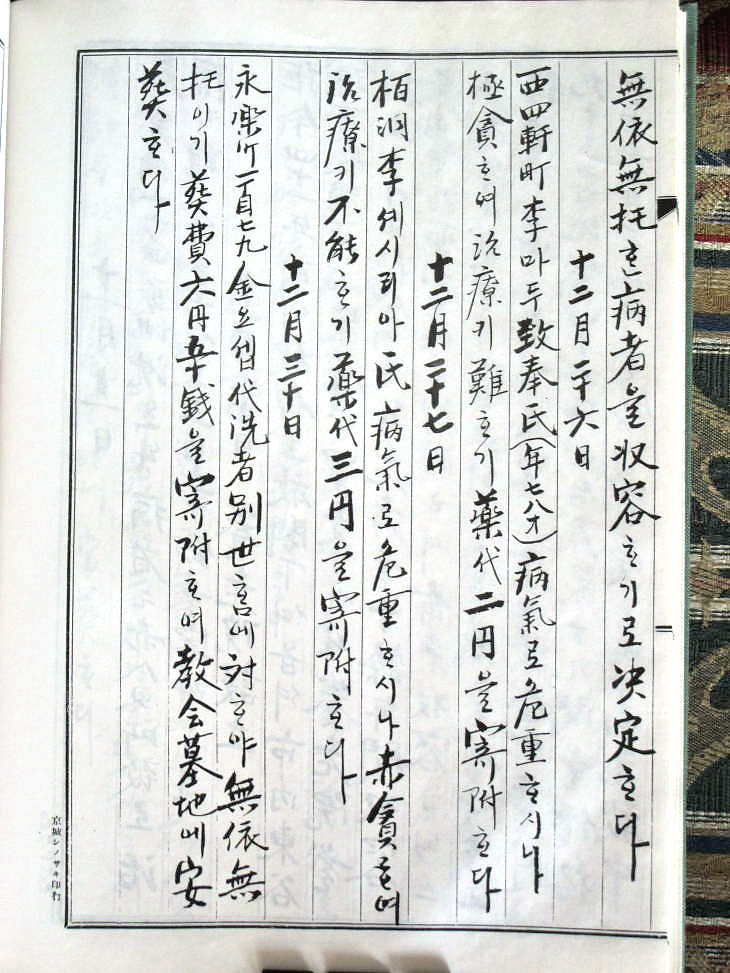 無依無托ᄒᆞᆫ病者을収容ᄒᆞ기로决定ᄒᆞ다
十二月二十六日
西四軒町李마두致奉氏(年七八才)病氣로危重ᄒᆞ시나
極貧ᄒᆞ며治療키難ᄒᆞ기藥代二円을寄附ᄒᆞ다
十二月二十七日
栢洞李세시리아氏病氣로危重ᄒᆞ시나赤貧ᄒᆞ며
治療키不能ᄒᆞ기藥代三円을寄附ᄒᆞ다
十二月三十日
永楽町一百七九金요셥代洗者別世ᄒᆞᆷ에対ᄒᆞ야無依無
托이기葬費六円五十錢을寄附ᄒᆞ며教会墓地에安
葬ᄒᆞ다
京城シノサキ印行